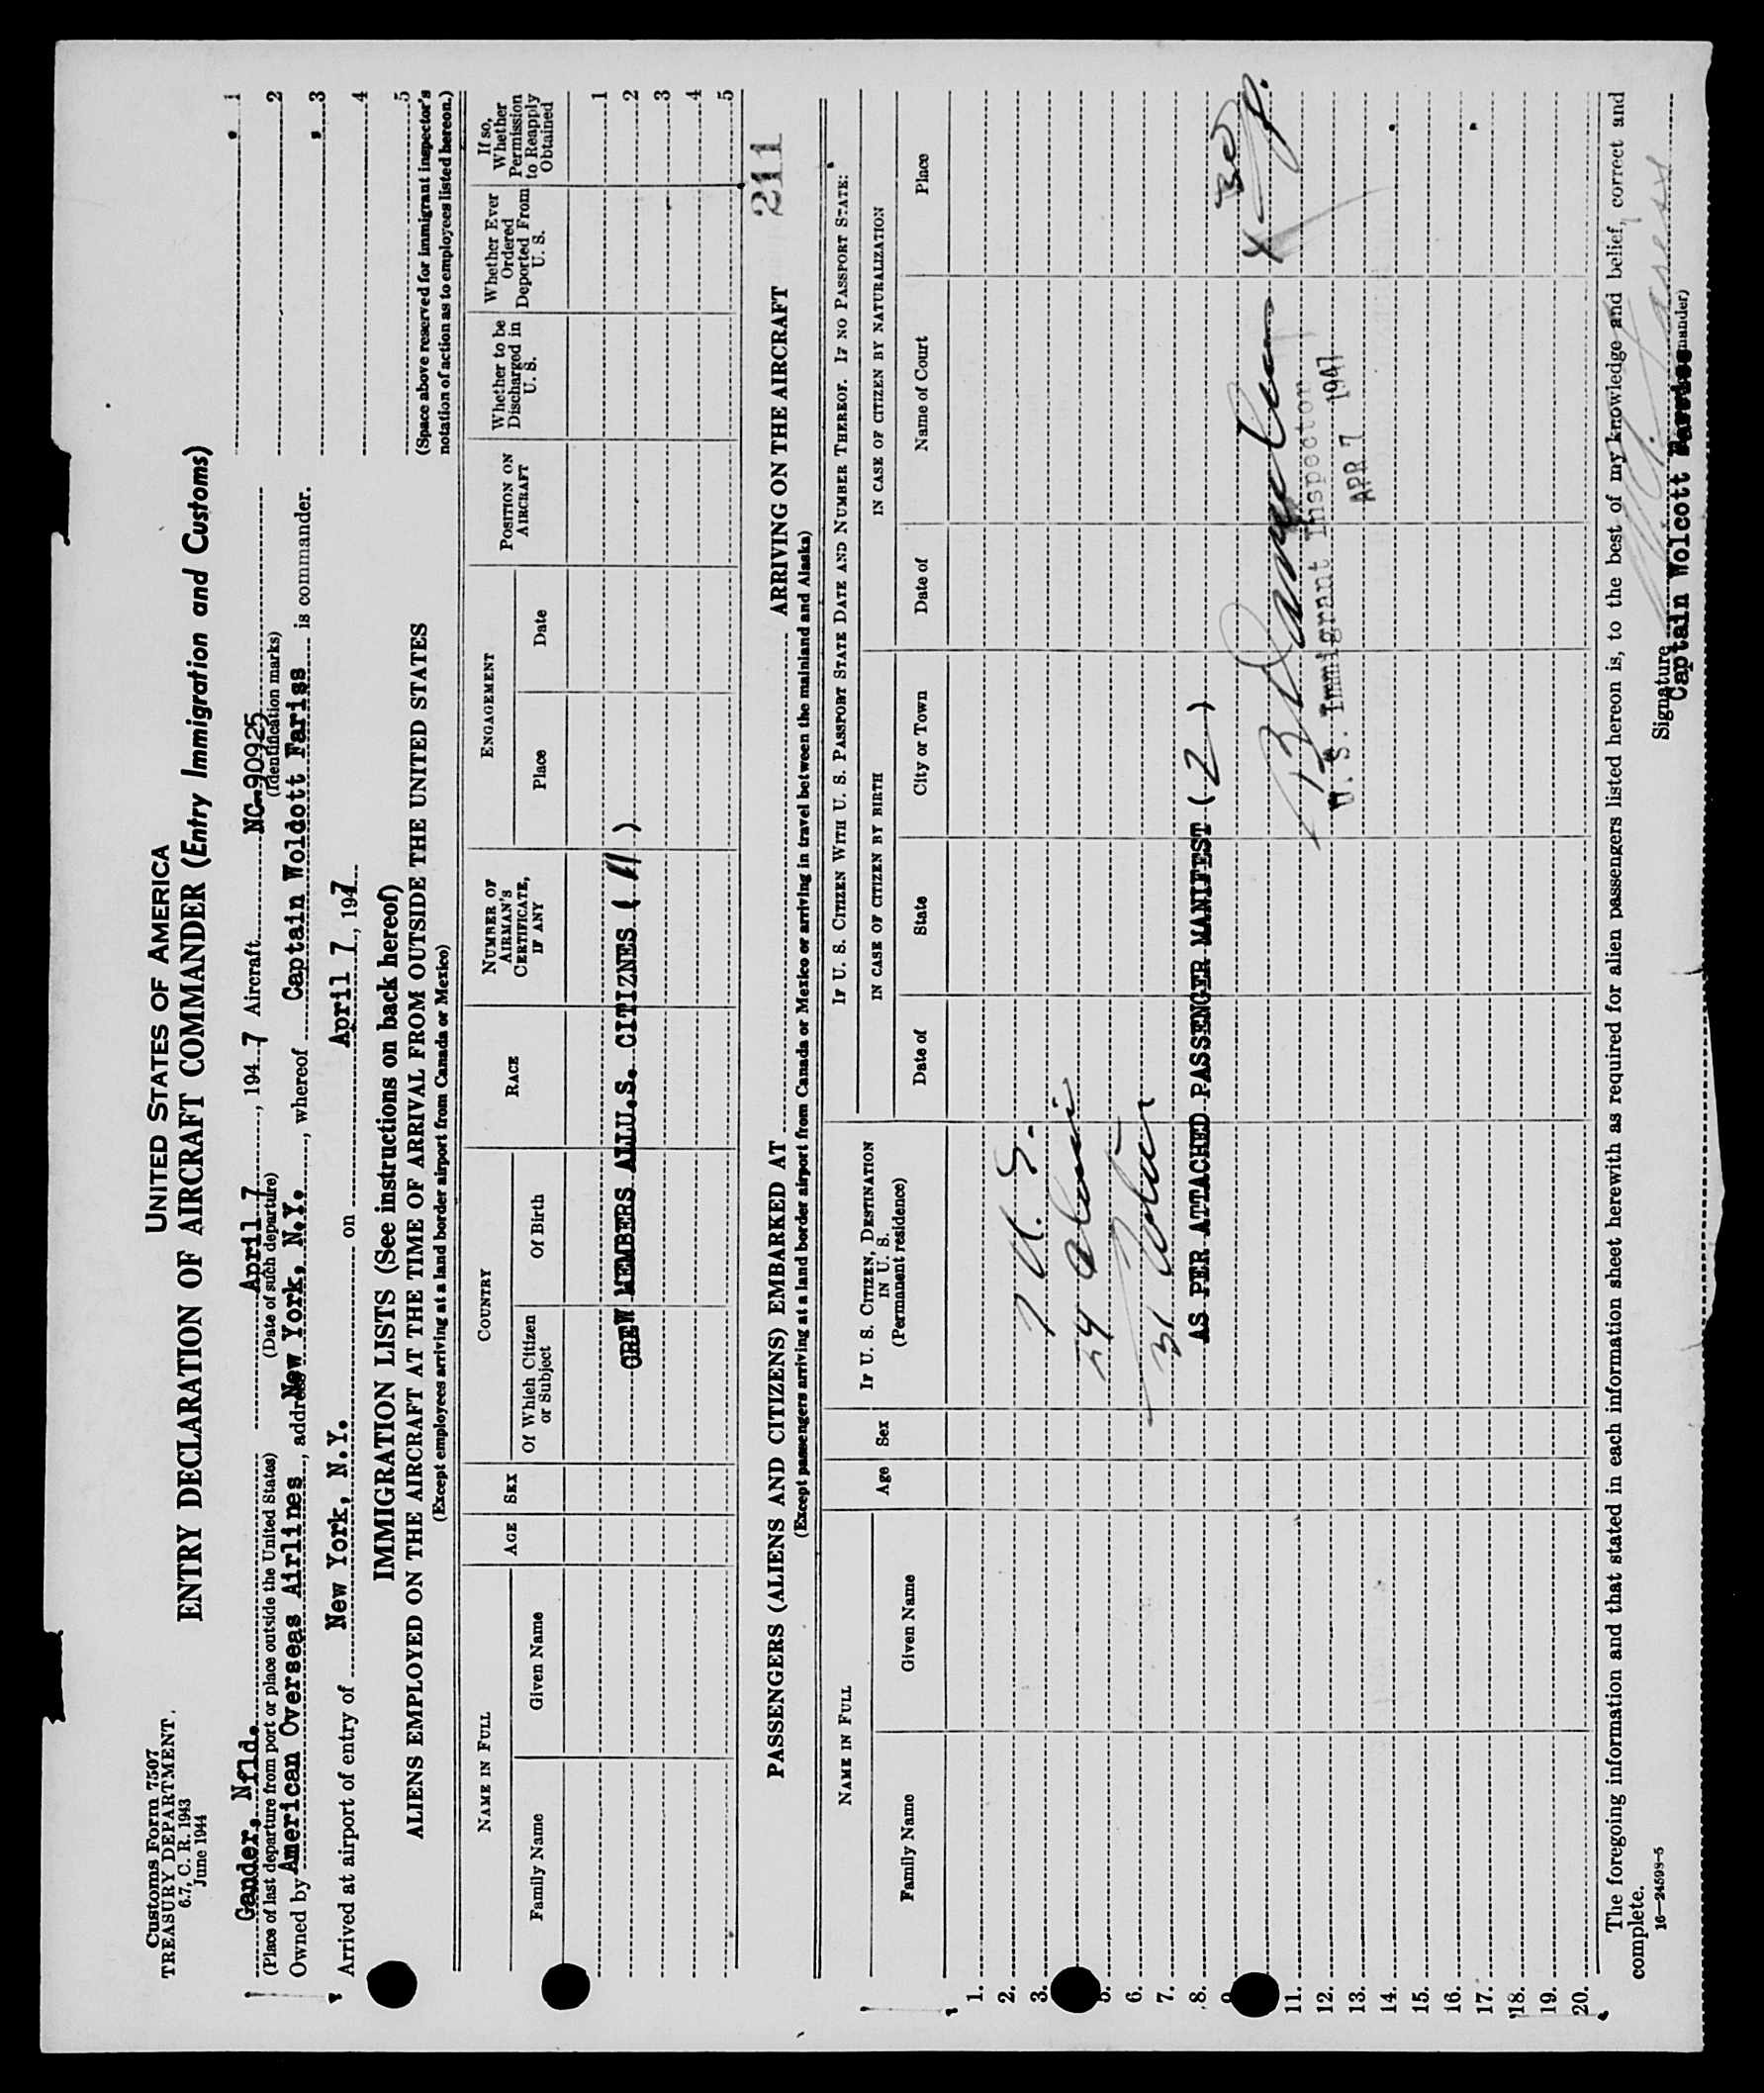 Customs Form 7507
TREASURY DEPARTMENT
6.7, C. R. 1943
June 1944
UNITED STATES OF AMERICA
ENTRY DECLARATION OF AIRCRAFT COMMANDER (Entry Immigration and Customs)
Gander, Nfld. April 7, 1947 Aircraft NC-90925
(Place of last departure from port or place outside the United States) (Date of such departure) (Identification marks)
Owned by American Overseas Airlines, address New York, N.Y., whereof Captain Woldott Fariss is commander.
Arrived at airport of entry of New York, N.Y. on April 7, 1947
1
2
3
4
5
(Space above reserved for immigrant inspector's
notation of action as to employees listed hereon.)
IMMIGRATION LISTS (See instructions on back hereof)
ALIENS EMPLOYED ON THE AIRCRAFT AT THE TIME OF ARRIVAL FROM OUTSIDE THE UNITED STATES
(Except employees arriving at a land border airport from Canada or Mexico)
NAME IN FULL
Family Name
Given Name
AGE
SEX
COUNTRY
Of Which Citizen or Subject
Of Birth
RACE
NUMBER OF AIRMAN'S CERTIFICATE, IF ANY
ENGAGEMENT
Place
Date
POSITION ON AIRCRAFT
Whether to be Discharged in U. S.
Whether Ever Ordered Deported From U. S.
If so, Whether Permission to Reapply Obtained
1
CREW MEMBERS ALLU.S. CITIZNES ( 11 ) 2
3
4
5
211
PASSENGERS (ALIENS AND CITIZENS) EMBARKED AT ARRIVING ON THE AIRCRAFT
(Except passengers arriving at a land border airport from Canada or Mexico or arriving in travel between the mainland and Alaska)
NAME IN FULL
Family Name
Given Name
Age
Sex
IF U. S. CITIZEN, DESTINATION IN U. S.
(Permanent residence)
IF U. S. CITIZEN WITH U. S. PASSPORT STATE DATE AND NUMBER THEREOF. IF NO PASSPORT STATE:
IN CASE OF CITIZEN BY BIRTH
Date of
State
City or Town
IN CASE OF CITIZEN BY NATURALIZATION
Date of
Name of Court
Place
1.
2.
3. 7 U. S.
5.
6.
7. 31
8. AS PER ATTACHED PASSENGER MANIFEST ( 2 )
11.
12. U.S. Immigrant Inspector
13. APR 7 1947
14.
15.
16.
17.
18.
19.
20.
The foregoing information and that stated in each information sheet herewith as required for alien passengers listed hereon is, to the best of my knowledge and belief, correct and
complete.
16—24598-5
Signature
Captain Wolcott